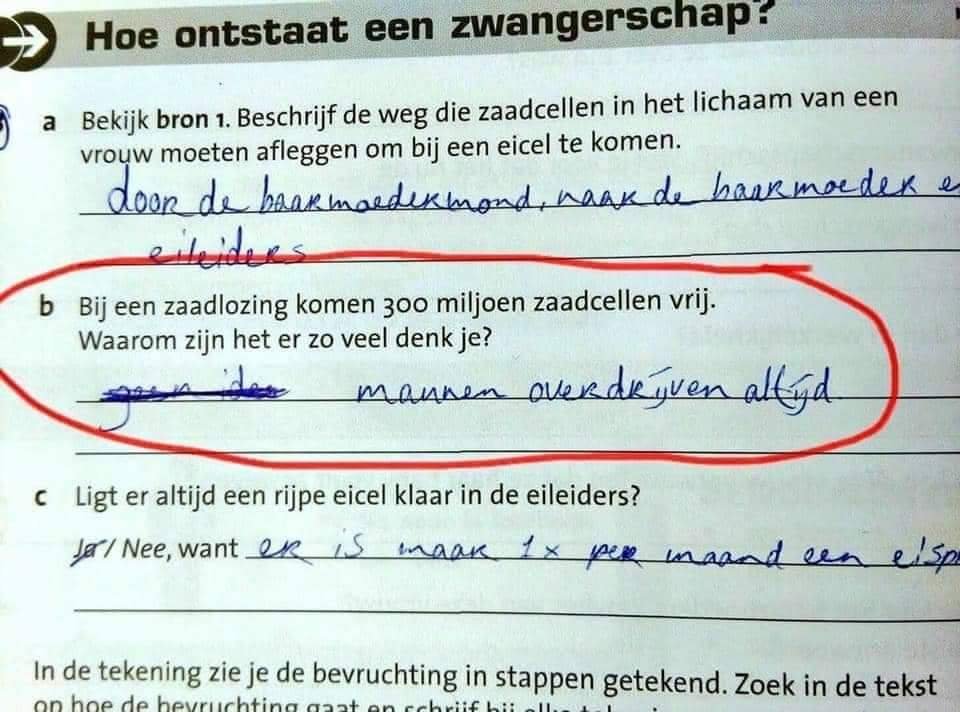 Hoe ontstaat een zwangerschap?
a Bekijk bron 1. Beschrijf de weg die zaadcellen in het lichaam van een
vrouw moeten afleggen om bij een eicel te komen.
door de baarmoedermond, naar de baarmoeder e
eileiders
b Bij een zaadlozing komen 300 miljoen zaadcellen vrij.
Waarom zijn het er zo veel denk je?
geen idee mannen overdrijven altijd
c Ligt er altijd een rijpe eicel klaar in de eileiders?
Ja / Nee, want er is maar 1x per maand een eispr
In de tekening zie je de bevruchting in stappen getekend. Zoek in de tekst
op hoe de bevruchting gaat en schrijf bij elke